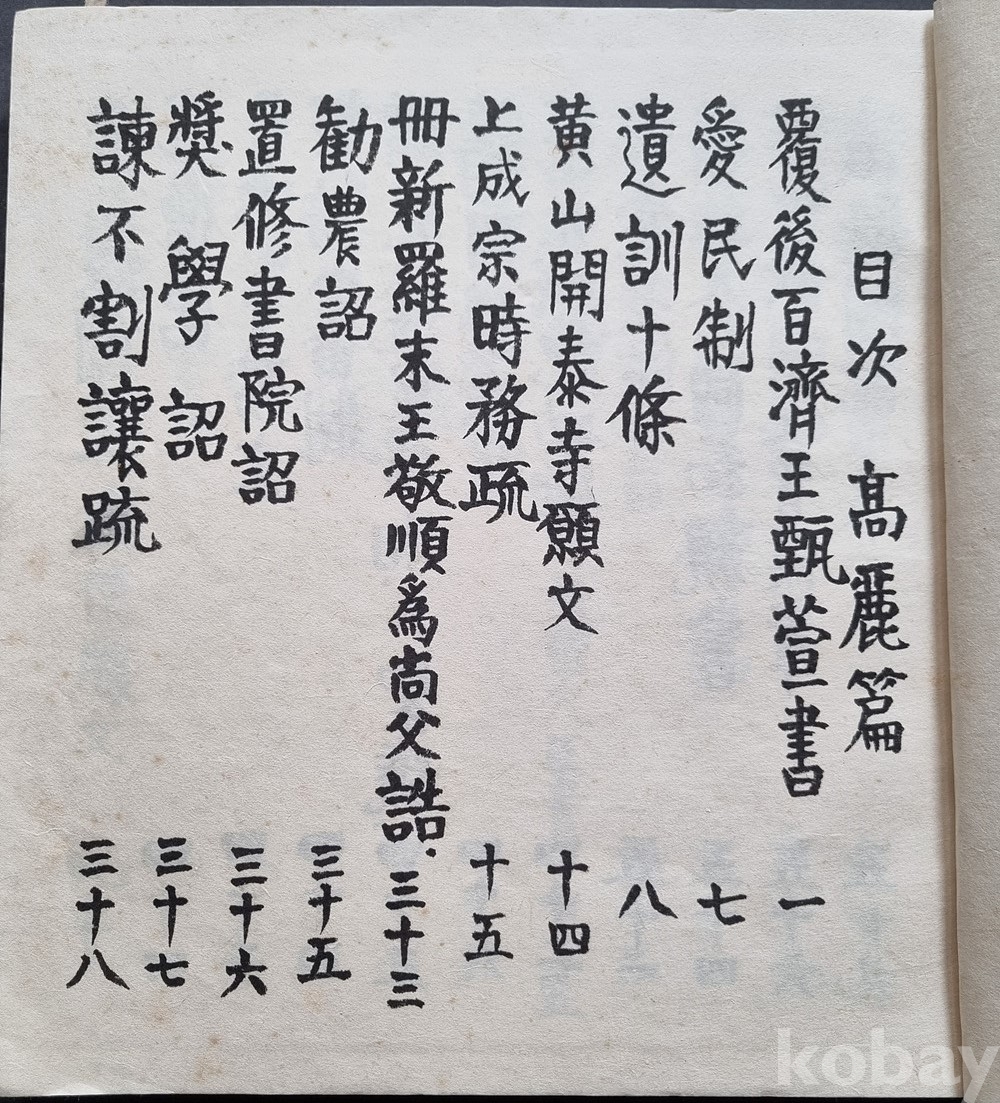 目次 高麗篇
覆後百濟王甄萱書 一
愛民制 七
遺訓十條 八
黄山開泰寺願文 十四
上成宗時務疏 十五
冊新羅末王敬順爲尚父誥 三十三
勧農詔 三十五
置修書院詔 三十六
奬學詔 三十七
諫不割讓疏 三十八
kobay